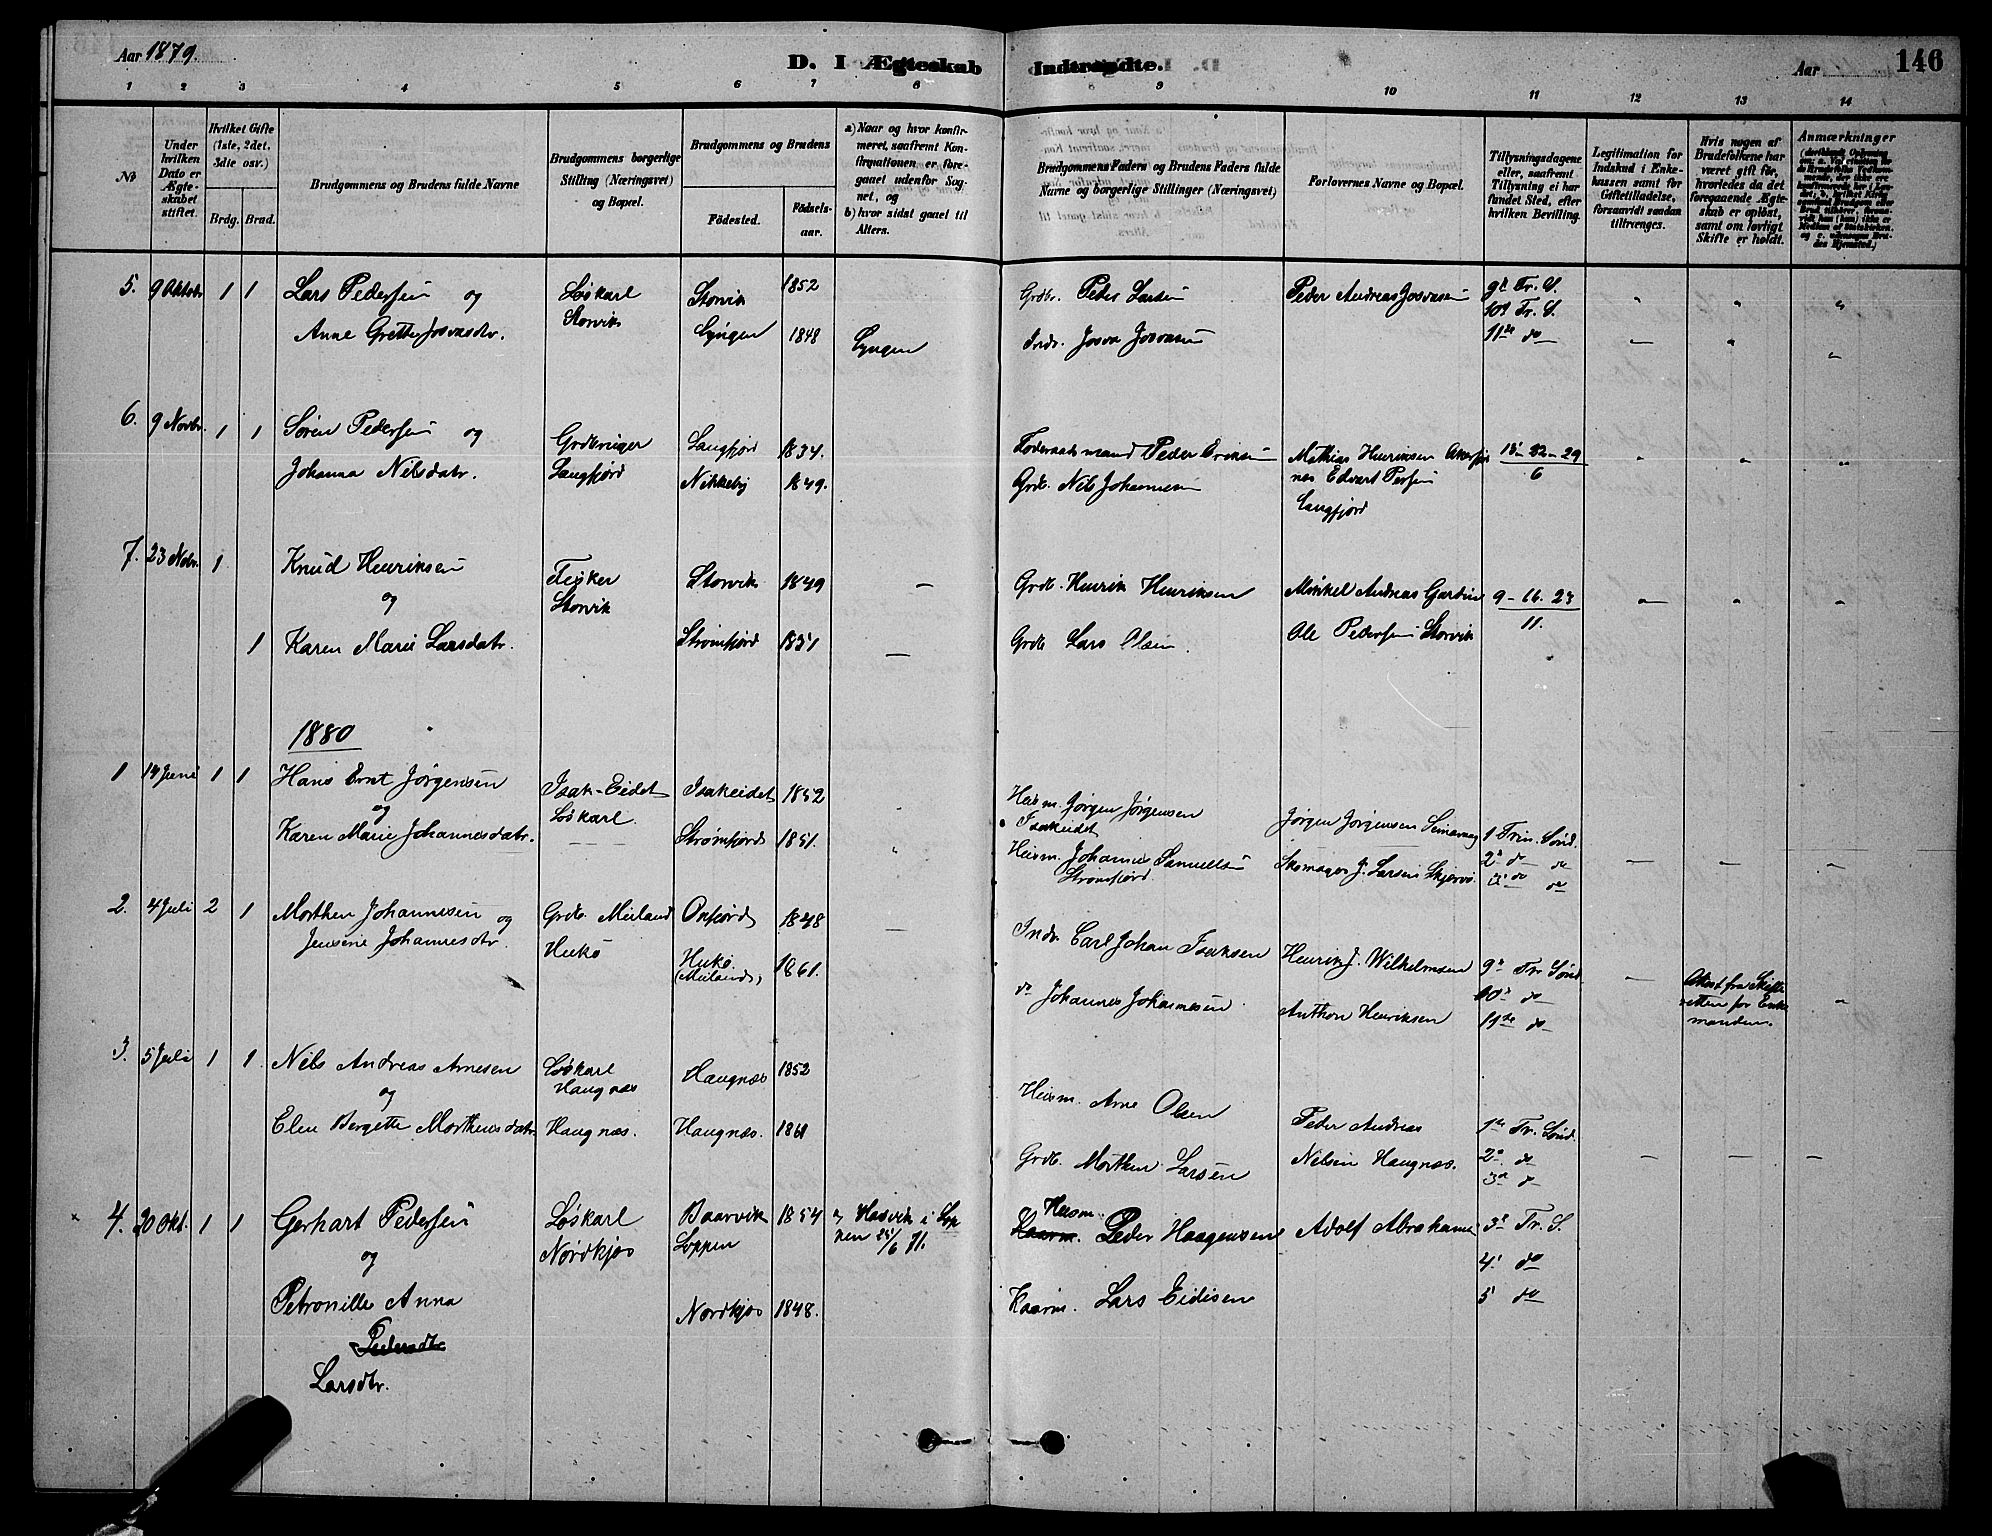 Aar 1879.
D. I Ægteskab Indtraadte.
Aar
146
1 2 3 4 5 6 7 8 9 10 11 12 13 14
No
Under hvilken Dato er Ægteskabet stiftet.
Hvilket Gifte (1ste, 2det, 3die osv.)
Brdg. Brud.
Brudgommens og Brudens fulde Navne
Brudgommens borgerlige Stilling (Næringsvei) og Bopæl.
Brudgommens og Brudens
Födested.
Födselsaar.
a) Naar og hvor konfirmeret, saafremt Konfirmationen er foregaaet udenfor Sognet, og
b) hvor sidst gaaet til Alters.
Brudgommens Faders og Brudens Faders fulde Navne og borgerlige Stillinger (Næringsvei)
Forlovernes Navne og Bopæl.
Tillysningsdagene eller, saafremt Tillysning ei har fundet Sted, efter hvilken Bevilling.
Legitimation for Indskud i Enkekassen samt for Giftetilladelse, forsaavidt saadan tiltrænges.
Hvis nogen af Brudefolkene har været gift før, hvorledes da det foregaaende Ægteskab er opløst, samt om lovligt Skifte er holdt.
Anmærkninger
5. 9 Oktob 1 1 Lars Pedersen og Løskarl Storvik Storvik 1852 Grdbr. Peder Larsen Peder Andreas Josvasen 9d Tr. S.
10d Tr. S.
Anne Grethe Josvasdtr. Lyngen 1848 Lyngen Indr. Josva Josvasen 11te do
6. 9 Novbr. 1 1 Søren Pedersen og Grdbruger Langfjord Langfjord 1834. Føderaadsmand Peder Eriksen Mathias Henriksen
Johanna Nilsdatr. Nikkeby 1849. Grdb. Nils Johannesen Edvart Persen Langfjord 6
7. 23 Nobr. 1 Knud Henriksen Fisker Storvik Storvik 1849 — Grdb. Henrik Henriksen Mikkel Andreas 9 - 16. 23
og 11.
1 Karen Marie Larsdatr. Strömfjord 1851 — Grdb Lars Olsen. Ole Pedersen Storvik
1880
1 1 1 Hans Ernt Jørgensen Isak-Eidet Løskarl. Isakeidet 1852 Heism. Jørgen Jørgensen Isakeidet Jørgen Jørgensen 1 Trin. Sönd.
og
Karen Marie Johannesdatr. Strømfjord 1851. Heism. Johannes Samuelsen Strömfjord. Skomager J. Larsen Skjervø. 2n do do
do do
2. 4 Juli 2 1 Morthen Johannesen og Grdb. Meiland Onfjord 1848 — Indr. Carl Johan Isaksen Henrik J. Wilhelmsen 9n Tr Sönd
Jensine Johannesdtr. Hukø Hukø (Meiland) 1861. do Johannes Johannesen Anthon Henriksen 10d do
11te do
Attest fra Skifteretten for Enkemanden.
3. 5 Juli 1 1 Nils Andreas Arnesen Løskarl Haugnæs Haugnæs 1852 Heism. Arne Olsen Peder Andreas 1te Tr. Sönd.
og
Elen Bergette Morthensdatr Haugnæs. Haugnæs. 1861 Grdb. Morthen Larsen Nilsen Haugnæs. 2n do
3d d
4. 20 Okt. 1 1 Gerhart Pedersen Løskarl Nordkjos Baarvik Loppen 1854 a, Hasvik i Loppen 25/6 71. Heism. Kaarm. Peder Haagensen Adolf Abrahamsen 3d Tr. S.
og 4. do
Petronille Anna Nordkjos 1848. Kaarm. Lars Eidisen 5 do
Pedersdtr
Larsdtr.